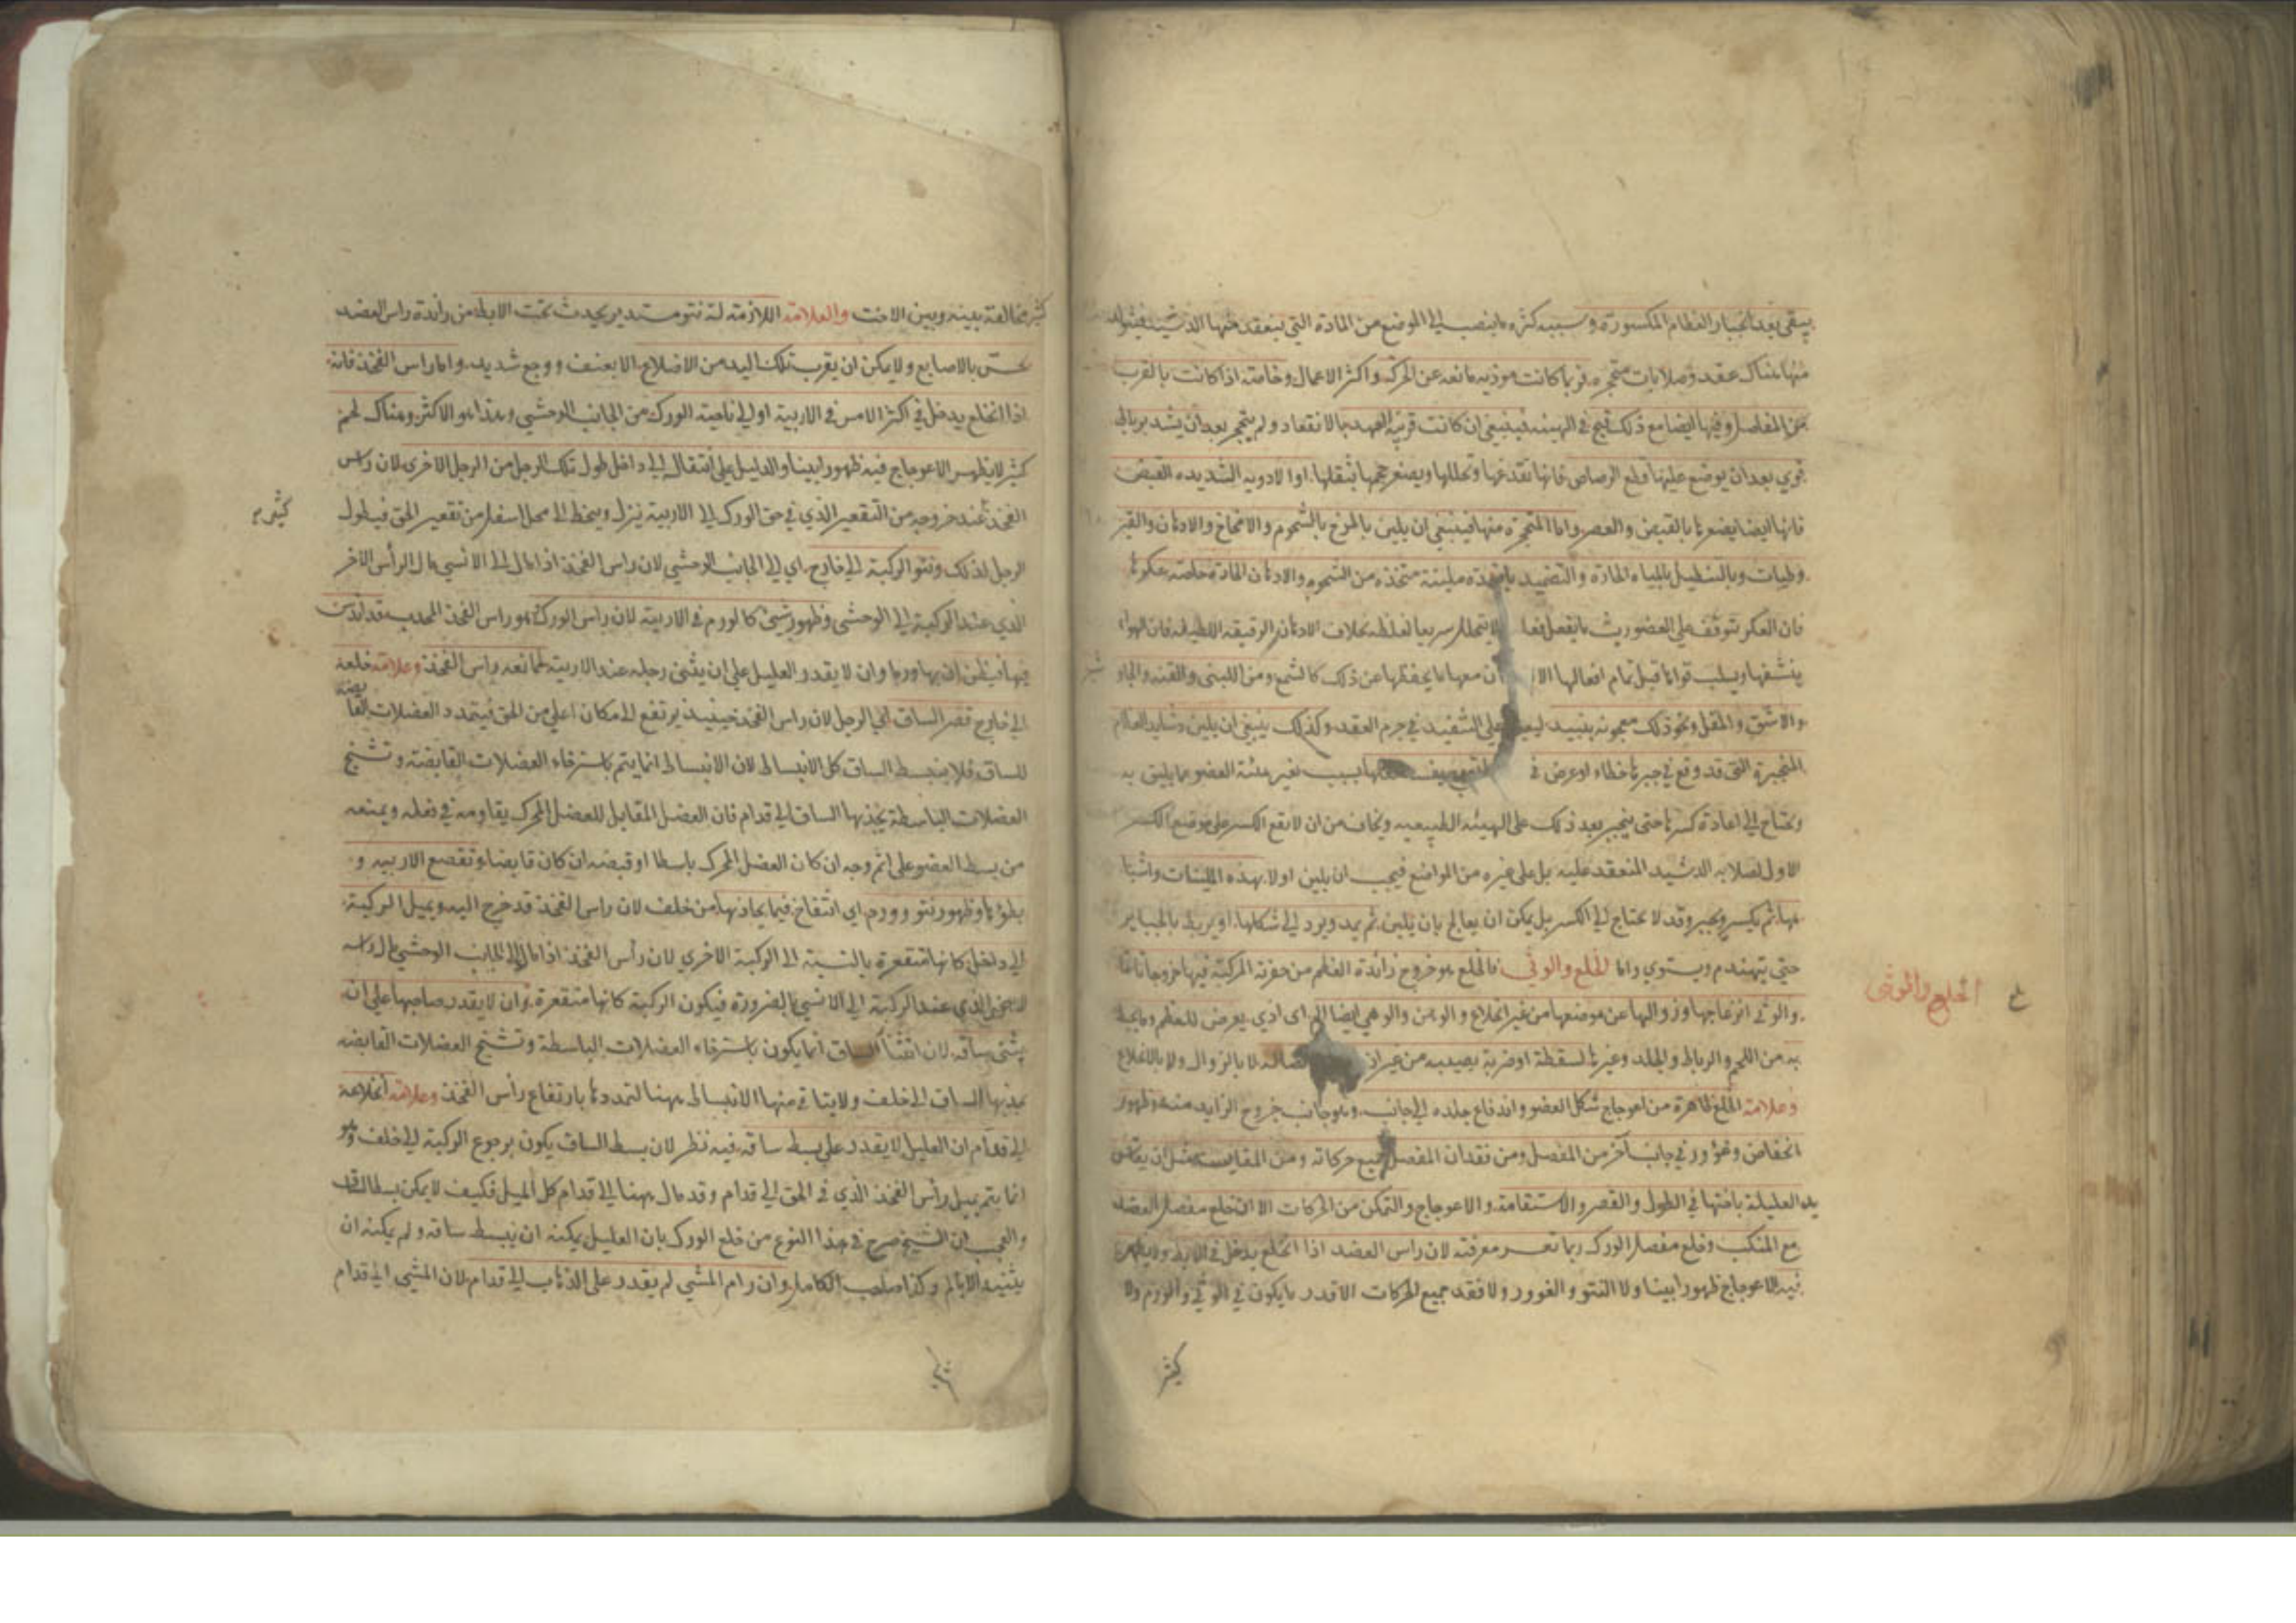 يبقى بعد انجبار العظام المكسورة وسببه كثرة ما ينصب الى الموضع من المادة التي ينعقد منها الدشبذ فيتولد
منها هناك عقد وصلابات متحجرة فربما كانت موذيه مانعه عن الحركة واكثر الاعمال وخاصة اذا كانت بالقرب
من المفاصل وفيها ايضا مع ذلك قبح في الهيئه فينبغي ان كانت قريبة العهد بالانعقاد ولم يتحجر بعد ان يشد برباط
قوي بعد ان يوضع عليها قطع الرصاص فانها تفدغها وتحللها ويصغر حجمها بثقلها او الادويه الشديده القبض
فانها ايضا يضمرها بالقبض والعصر واما المتحجرة منها فينبغي ان يلين بالمرخ بالشحوم والامخاخ والادهان والقير
وطيات وبالتنطيل بالمياه الحارة والتضميد باضمدة ملينة متخذه من الشحوم والادهان الحارة خاصة عكرها
فان العكر تتوقف على العضو ريث ما يفعل فعلا لا يتحلل سريعا لغلظه بخلاف الادهان الرقيقة اللطيفه فان الهواء
ينشفها ويسلب قواها قبل تمام افعالها الا ان معها ما يحفظها عن ذلك كالشمع ومن اللبنى والقنه والجاو
شير
والاشق والمقل ونحو ذلك معجونه بنبيذ ليعين على التنفيذ في جرم العقد وكذلك ينبغي ان يلين دشابد العظام
المنجبرة التي قد وقع في جبرها خطاء او عرض في بسبب تغير هيئة العضو عما يليق به
ويحتاج الى اعادة كسرها حتى ينجبر بعد ذلك على الهيئه الطبيعيه ويخاف من ان لا يقع الكسر على موضع الكسر
الاول لصلابه الدشبد المنعقد عليه بل على غيره من المواضع فيجب ان يلين اولا بهذه الملينات واشبا
هها ثم يكسر ويجبر وقد لا يحتاج الى الكسر بل يمكن ان يعالج بان يلين ثم يمد ويرد الى شكلها او يربط بالجباير
حتى يتهندم ويستوي واما الخلع والوثي فالخلع هو خروج زائدة العظم من حفرته المركبة فيها خروجا تاما
الخلع والوثى
والوثي انزعاجها وزوالها عن موضعها من غير انخلاع والوهن والوهي ايضا الى اى اذي يعرض للعظم وما يحيط
به من اللحم والرباط والجلد وغيرها لسقطة او ضربة يصيبه من غير لا بالزوال ولا بالانخلاع
وعلامة الخلع ظاهرة من اعوجاج شكل العضو واندفاع جلده الى جانب وهو جانب خروج الزايد منه وظهور
انخفاض وغوور في جانب آخر من المفصل ومن فقدان المفصل جميع حركاته ومن المقايسة مثل ان يقاس
يد العليلة باختها في الطول والقصر والاستقامة والاعوجاج والتمكن من الحركات الا ان خلع مفصل العضد
مع المنكب وخلع مفصل الورك ربما تعسر معرفته لان راس العضد اذا انخلع يدخل في الابط ولا يظهر
فيه الاعوجاج ظهورا بينا ولا النتو والغوور ولا فقد جميع الحركات الا قدر ما يكون في الوثي والورم ولا
كثير
كثير مخالفة بينه وبين الاخت والعلامة اللازمة له نتو مستدير يحدث تحت الابط من زائدة راس العضد
يحس بالاصابع ولا يمكن ان يقرب تلك اليد من الاضلاع الا بعنف ووجع شديد واما راس الفخذ فانه
اذا انخلع يدخل في اكثر الامر في الاربية او الى ناحية الورك من الجانب الوحشي وهذا هو الاكثر وهناك لحم
كثير لا يظهر الاعوجاج فيه ظهورا بينا والدليل على انتقاله الى داخل طول تلك الرجل من الرجل الاخرى لان راس
الفخذ عند خروجه من التقعير الذي في حق الورك الى الاربية ينزل وينحط الى محل اسفل من تقعير الحق فيطول
الرجل لذلك ونتو الركبة الى خارج اي الى الجانب الوحشي لان راس الفخذ اذا مال الى الانسي مال الرأس الاخر
الذي عند الركبة الى الوحشي وظهور شئ كالورم في الاربية لان راس الورك هو راس الفخذ المحدب قد اندس
فيها فيظن ان بها ورما وان لا يقدر العليل على ان يثنى رجله عند الاربية لممانعه راس الفخذ وعلامة خلعه
الى خارج قصر الساق اي الرجل لان راس الفخذ حينئذ يرتفع الى مكان اعلى من الحق فيتمدد العضلات القابضه
للساق فلا ينبسط الساق كل الانبساط لان الانبساط انما يتم باسترخاء العضلات القابضة وتشنج
العضلات الباسطة بجذبها الساق الى قدام فان العضل المقابل للعضل المحرك يقاومه في فعله ويمنعه
من بسط العضو على اتم وجه ان كان العضل المحرك باسطا او قبضه ان كان قابضا وتقصع الاربيه و
يلزها وظهور نتو وورم اي انتفاخ فيما يحاذيها من خلف لان راس الفخذ قد خرج اليه ويميل الركبة
الى داخل كانها متقعرة بالنسبة الى الركبة الاخري لان رأس الفخذ اذا مال الى الجانب الوحشي مال راسه
الذي عند الركبة الى الانسي بالضرورة فيكون الركبة كانها متقعرة وان لا يقدر صاحبها على ان
يثنى ساقه لان انثناء الساق انما يكون باسترخاء العضلات الباسطة وتشنج العضلات القابضه
بجذبها الساق الى خلف ولا يتاتى منها الانبساط ههنا لتمددها بارتفاع رأس الفخذ وعلامة انخلاعه
الى قدام ان العليل لا يقدر على بسط ساقه فيه نظر لان بسط الساق يكون برجوع الركبة الى خلف وهو
انما يتم بميل رأس الفخذ الذي في الحق الى قدام وقد مال ههنا الى قدام كل الميل فكيف لا يمكن بسط الساق
والعجب ان الشيخ صرح في هذا النوع من خلع الورك بان العليل يمكنه ان يبسط ساقه ولم يمكنه ان
يثنيه الا بالم وكذا صاحب الكامل وان رام المشي لم يقدر على الذهاب الى قدام لان المشي الى قدام